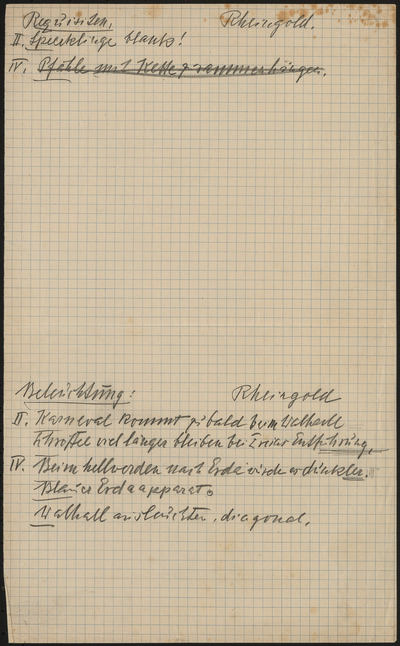 Requisiten. Rheingold.
II. Speerklinge blank!
IV. Pfähle mit Kette zusammenhängen.
Beleuchtung: Rheingold
II. Karneval kommt zu bald beim Walhall
viel länger bleiben bei Freias Entführung.
IV. Beim hellwerden nach Erda wieder dunkler.
Blauer Erdaapparat.
Walhall ausleuchten, diagonal.